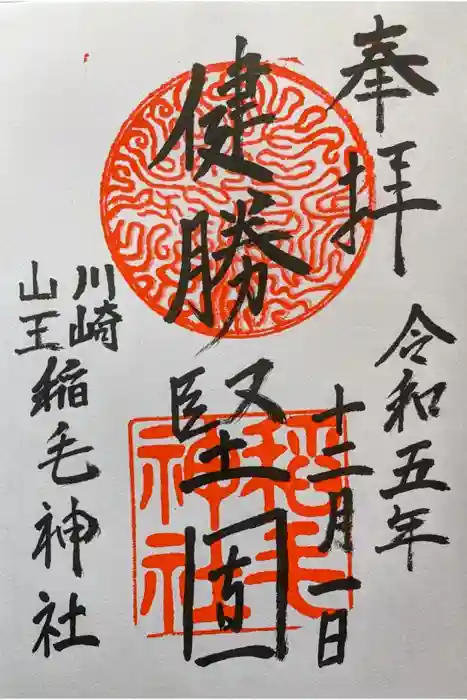 奉拝
令和五年
十二月一日
健勝堅固
川崎
山王
稲毛神社
稲毛
神社